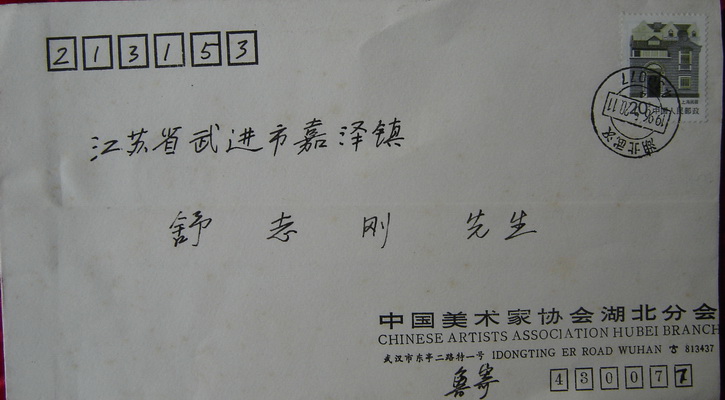 213153
上海民居
20 中国人民邮政
湖北武汉
江苏省武进市嘉泽镇
舒志刚 先生
中国美术家协会湖北分会
CHINESE ARTISTS ASSOCIATION HUBEI BRANCH
武汉市东亭二路特一号 IDONGTING ER ROAD WUHAN ☎ 813437
鲁寄
430077